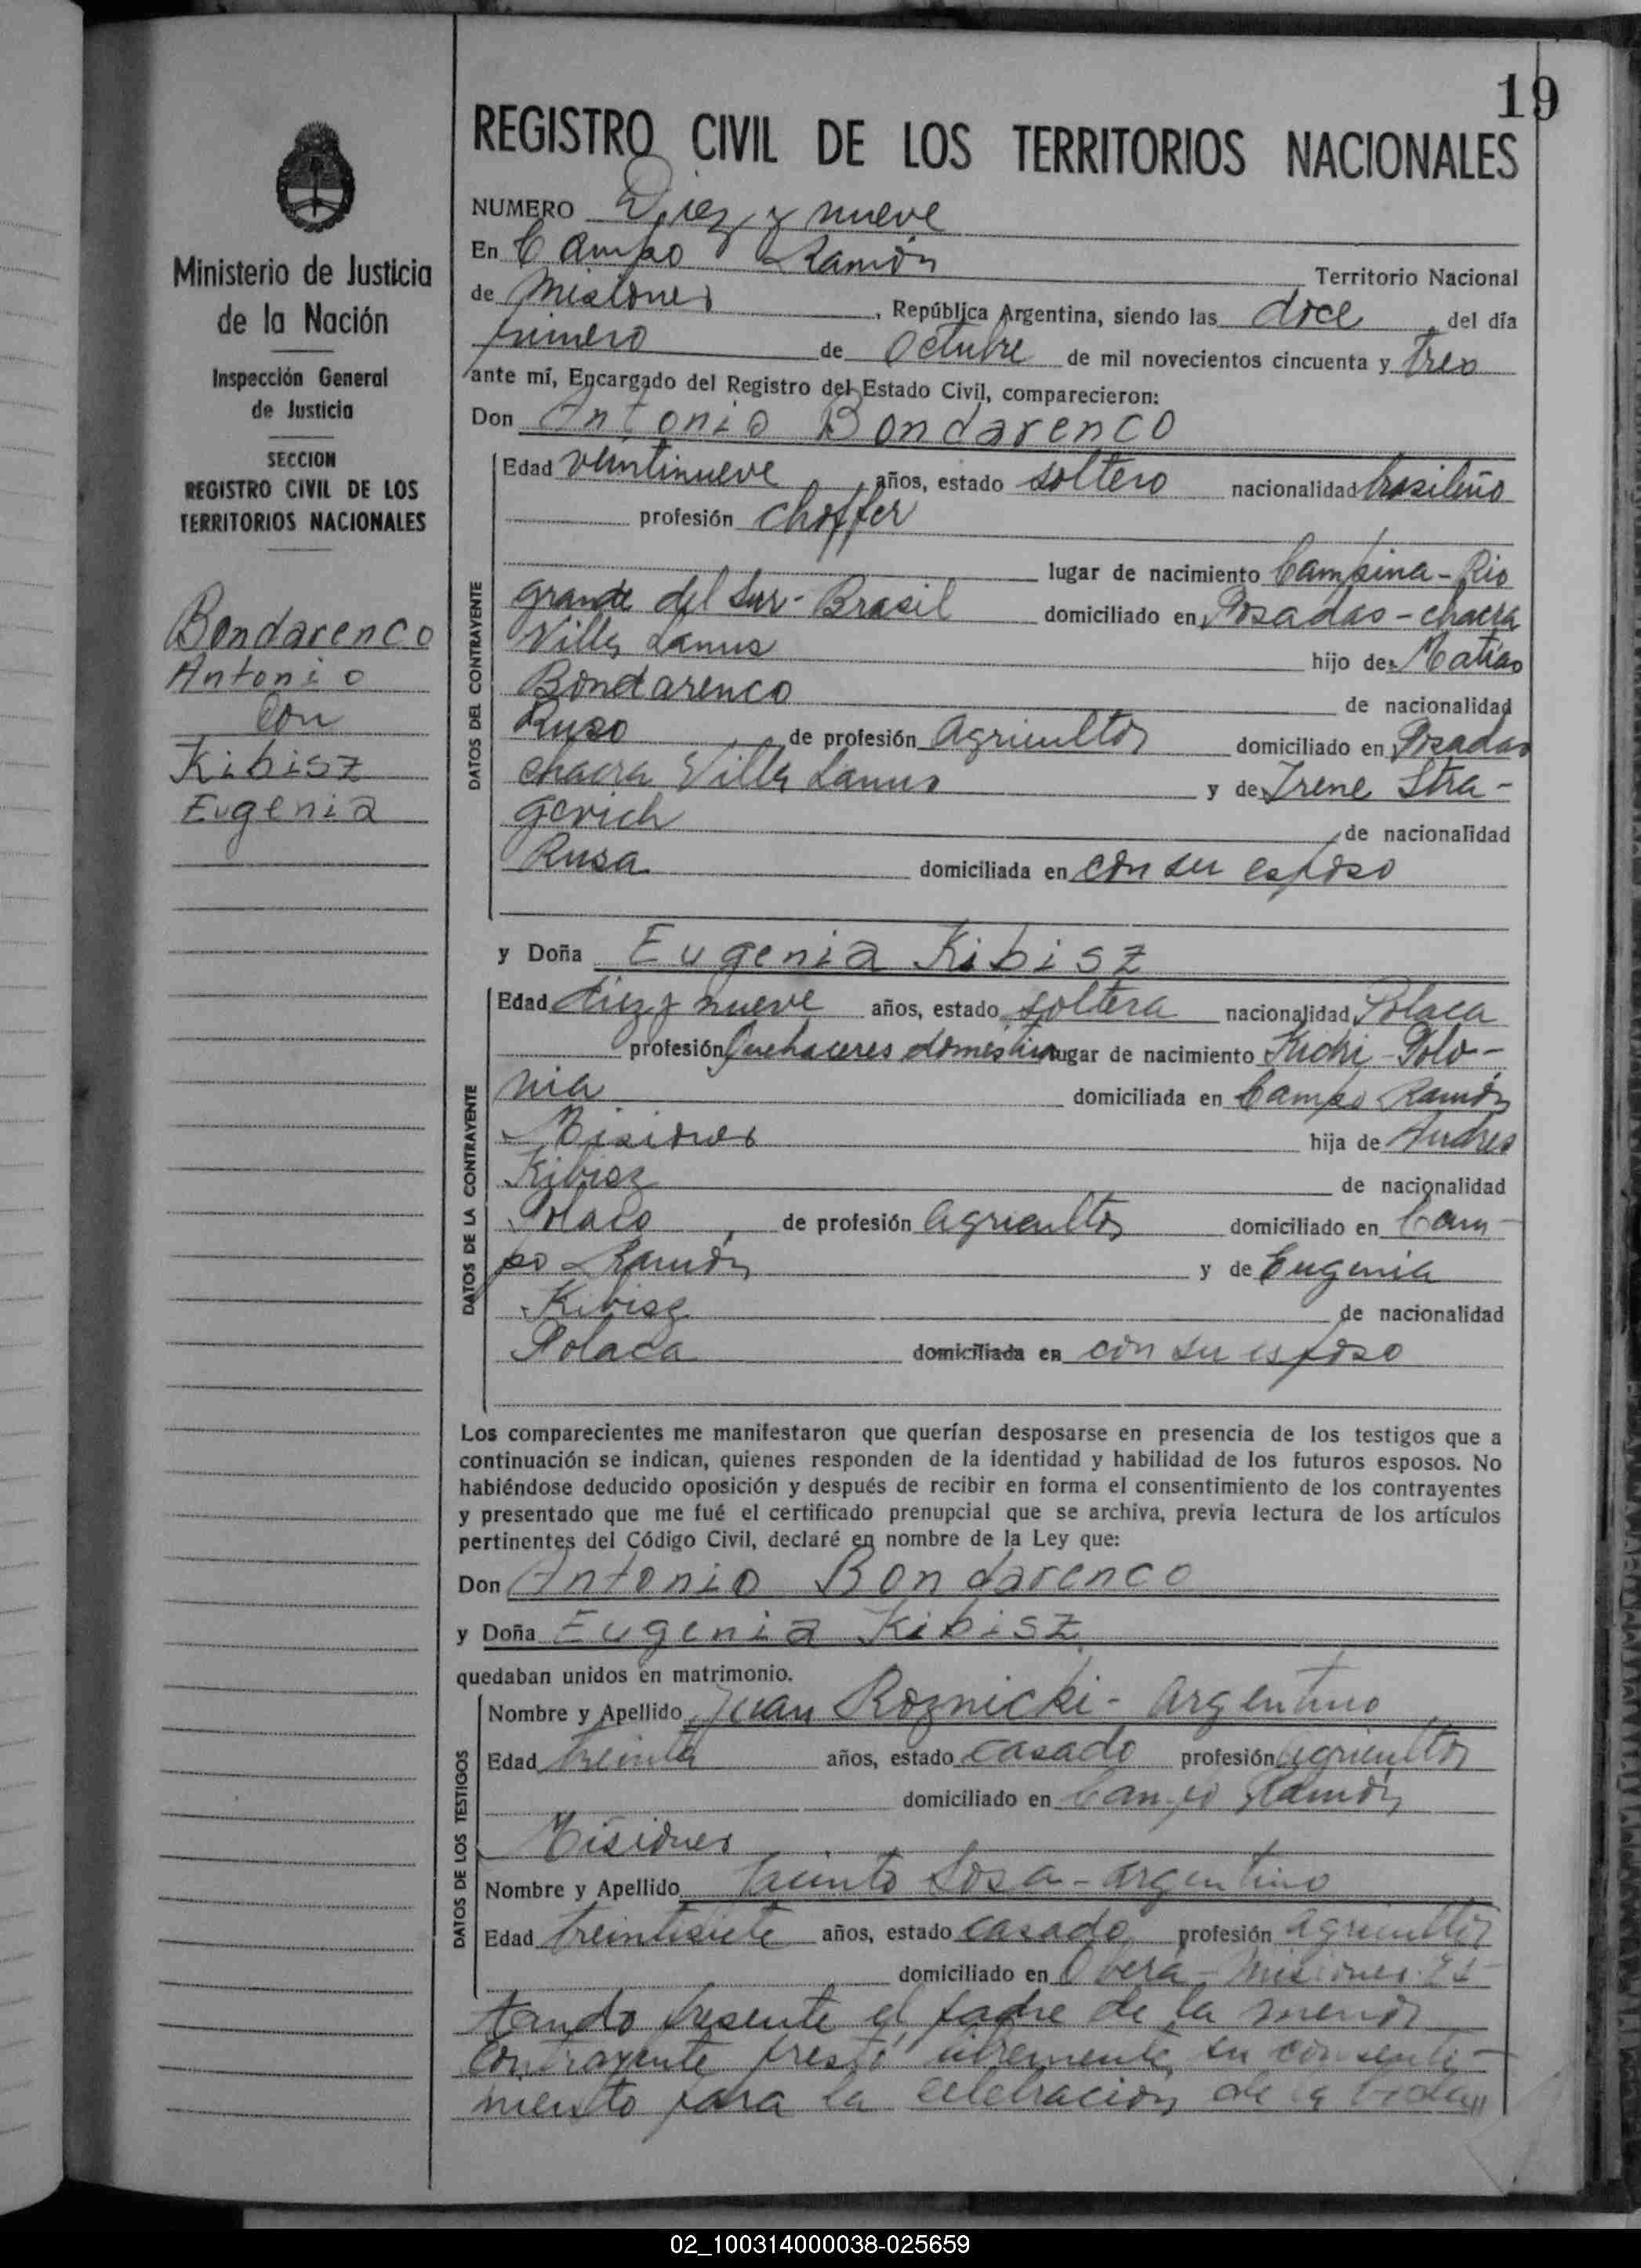 19
REGISTRO CIVIL DE LOS TERRITORIOS NACIONALES
Ministerio de Justicia
de la Nación
Inspección General
de Justicia
SECCION
REGISTRO CIVIL DE LOS
TERRITORIOS NACIONALES
Bondarenco
Antonio
Con
Kibisz
Eugenia
NUMERO Diez y nueve
En Campo Ramón Territorio Nacional
de Misiones, República Argentina, siendo las doce del día
primero de Octubre de mil novecientos cincuenta y tres
ante mí, Encargado del Registro del Estado Civil, comparecieron:
Don Antonio Bondarenco
DATOS DEL CONTRAYENTE
Edad veintinueve años, estado soltero nacionalidad brasileño
profesión choffer
lugar de nacimiento Campina - Rio
grande del Sur - Brasil domiciliado en Posadas - chacra
Villa Lanus hijo de Matias
Bondarenco de nacionalidad
Ruso de profesión Agricultor domiciliado en Posadas
chacra Villa Lanus y de Irene Stra-
gevich de nacionalidad
Rusa domiciliada en con su esposo
y Doña Eugenia Kibisz
DATOS DE LA CONTRAYENTE
Edad diez y nueve años, estado soltera nacionalidad Polaca
profesión Quehaceres domesticos lugar de nacimiento - Polo-
nia domiciliada en Campo Ramón
Misiones hija de Andres
Kibisz de nacionalidad
Polaco de profesión agricultor domiciliado en Cam-
po Ramón y de Eugenia
Kibisz de nacionalidad
Polaca domiciliada en con su esposo
Los comparecientes me manifestaron que querían desposarse en presencia de los testigos que a
continuación se indican, quienes responden de la identidad y habilidad de los futuros esposos. No
habiéndose deducido oposición y después de recibir en forma el consentimiento de los contrayentes
y presentado que me fué el certificado prenupcial que se archiva, previa lectura de los artículos
pertinentes del Código Civil, declaré en nombre de la Ley que:
Don Antonio Bondarenco
y Doña Eugenia Kibisz
quedaban unidos en matrimonio.
DATOS DE LOS TESTIGOS
Nombre y Apellido Juan Roznicki - argentino
Edad treinta años, estado casado profesión agricultor
domiciliado en Campo Ramón
Misiones
Nombre y Apellido Jacinto Sosa - argentino
Edad treintisiete años, estado casado profesión agricultor
domiciliado en Oberá - Misiones. Es-
tando presente el padre de la menor
contrayente prestó libremente su consenti-
miento para la celebración de la boda
02_100314000038-025659